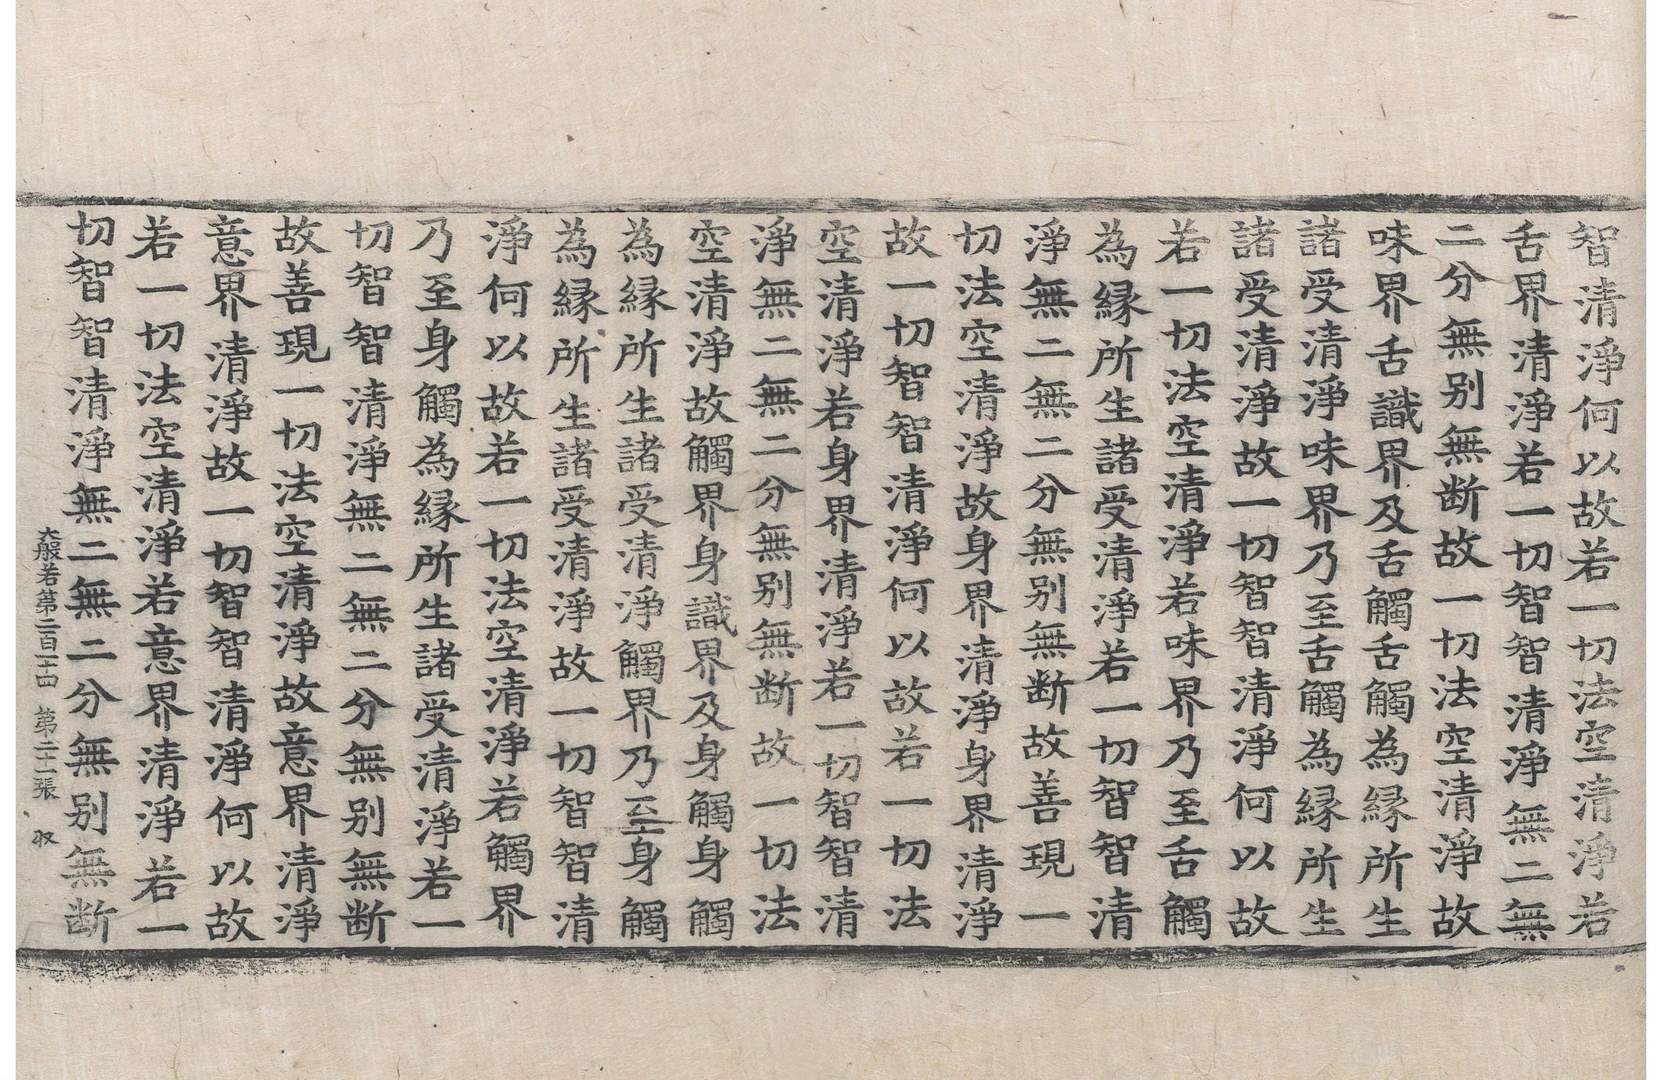 智清淨何以故若一切法空清淨若
舌界清淨若一切智智清淨無二無
二分無別無断故一切法空清淨故
味界舌識界及舌觸舌觸為縁所生
諸受清淨味界乃至舌觸為縁所生
諸受清淨故一切智智清淨何以故
若一切法空清淨若味界乃至舌觸
為縁所生諸受清淨若一切智智清
淨無二無二分無別無断故善現一
切法空清淨故身界清淨身界清淨
故一切智智清淨何以故若一切法
空清淨若身界清淨若一切智智清
淨無二無二分無別無断故一切法
空清淨故觸界身識界及身觸身觸
為縁所生諸受清淨觸界乃至身觸
為縁所生諸受清淨故一切智智清
淨何以故若一切法空清淨若觸界
乃至身觸為縁所生諸受清淨若一
切智智清淨無二無二分無別無断
故善現一切法空清淨故意界清淨
意界清淨故一切智智清淨何以故
若一切法空清淨若意界清淨若一
切智智清淨無二無二分無別無断
大般若第二百一十四 第二十一張 収